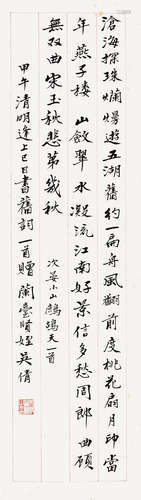 滄海探珠爛熳遊五湖舊約一扁舟風翻前度桃花扇月印當
年燕子樓 山斂翠水凝流江南好景信多愁周郎曲顧
無双曲宋玉秋悲第幾秋
次晏小山鷓鴣天一首
甲午清明逢上巳日書舊詞一首贈 蘭雲賢姪 吳倩